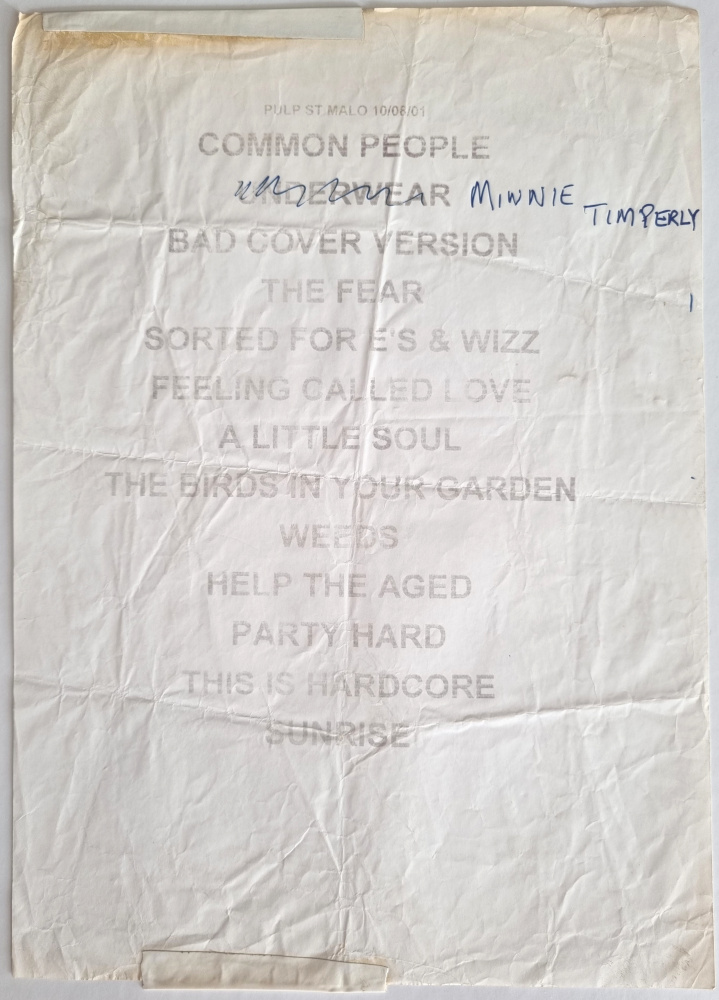 PULP ST.MALO 10/08/01
COMMON PEOPLE
UNDERWEAR MINNIE TIMPERLY
BAD COVER VERSION
THE FEAR
SORTED FOR E'S & WIZZ
FEELING CALLED LOVE
A LITTLE SOUL
THE BIRDS IN YOUR GARDEN
WEEDS
HELP THE AGED
PARTY HARD
THIS IS HARDCORE
SUNRISE